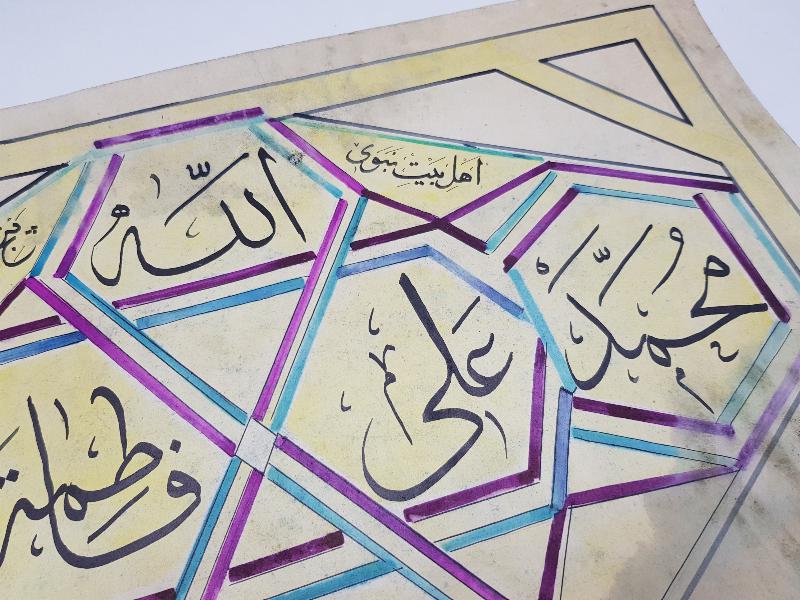 اهل بیت نبوی
الله
محمد
علی
فاطمة